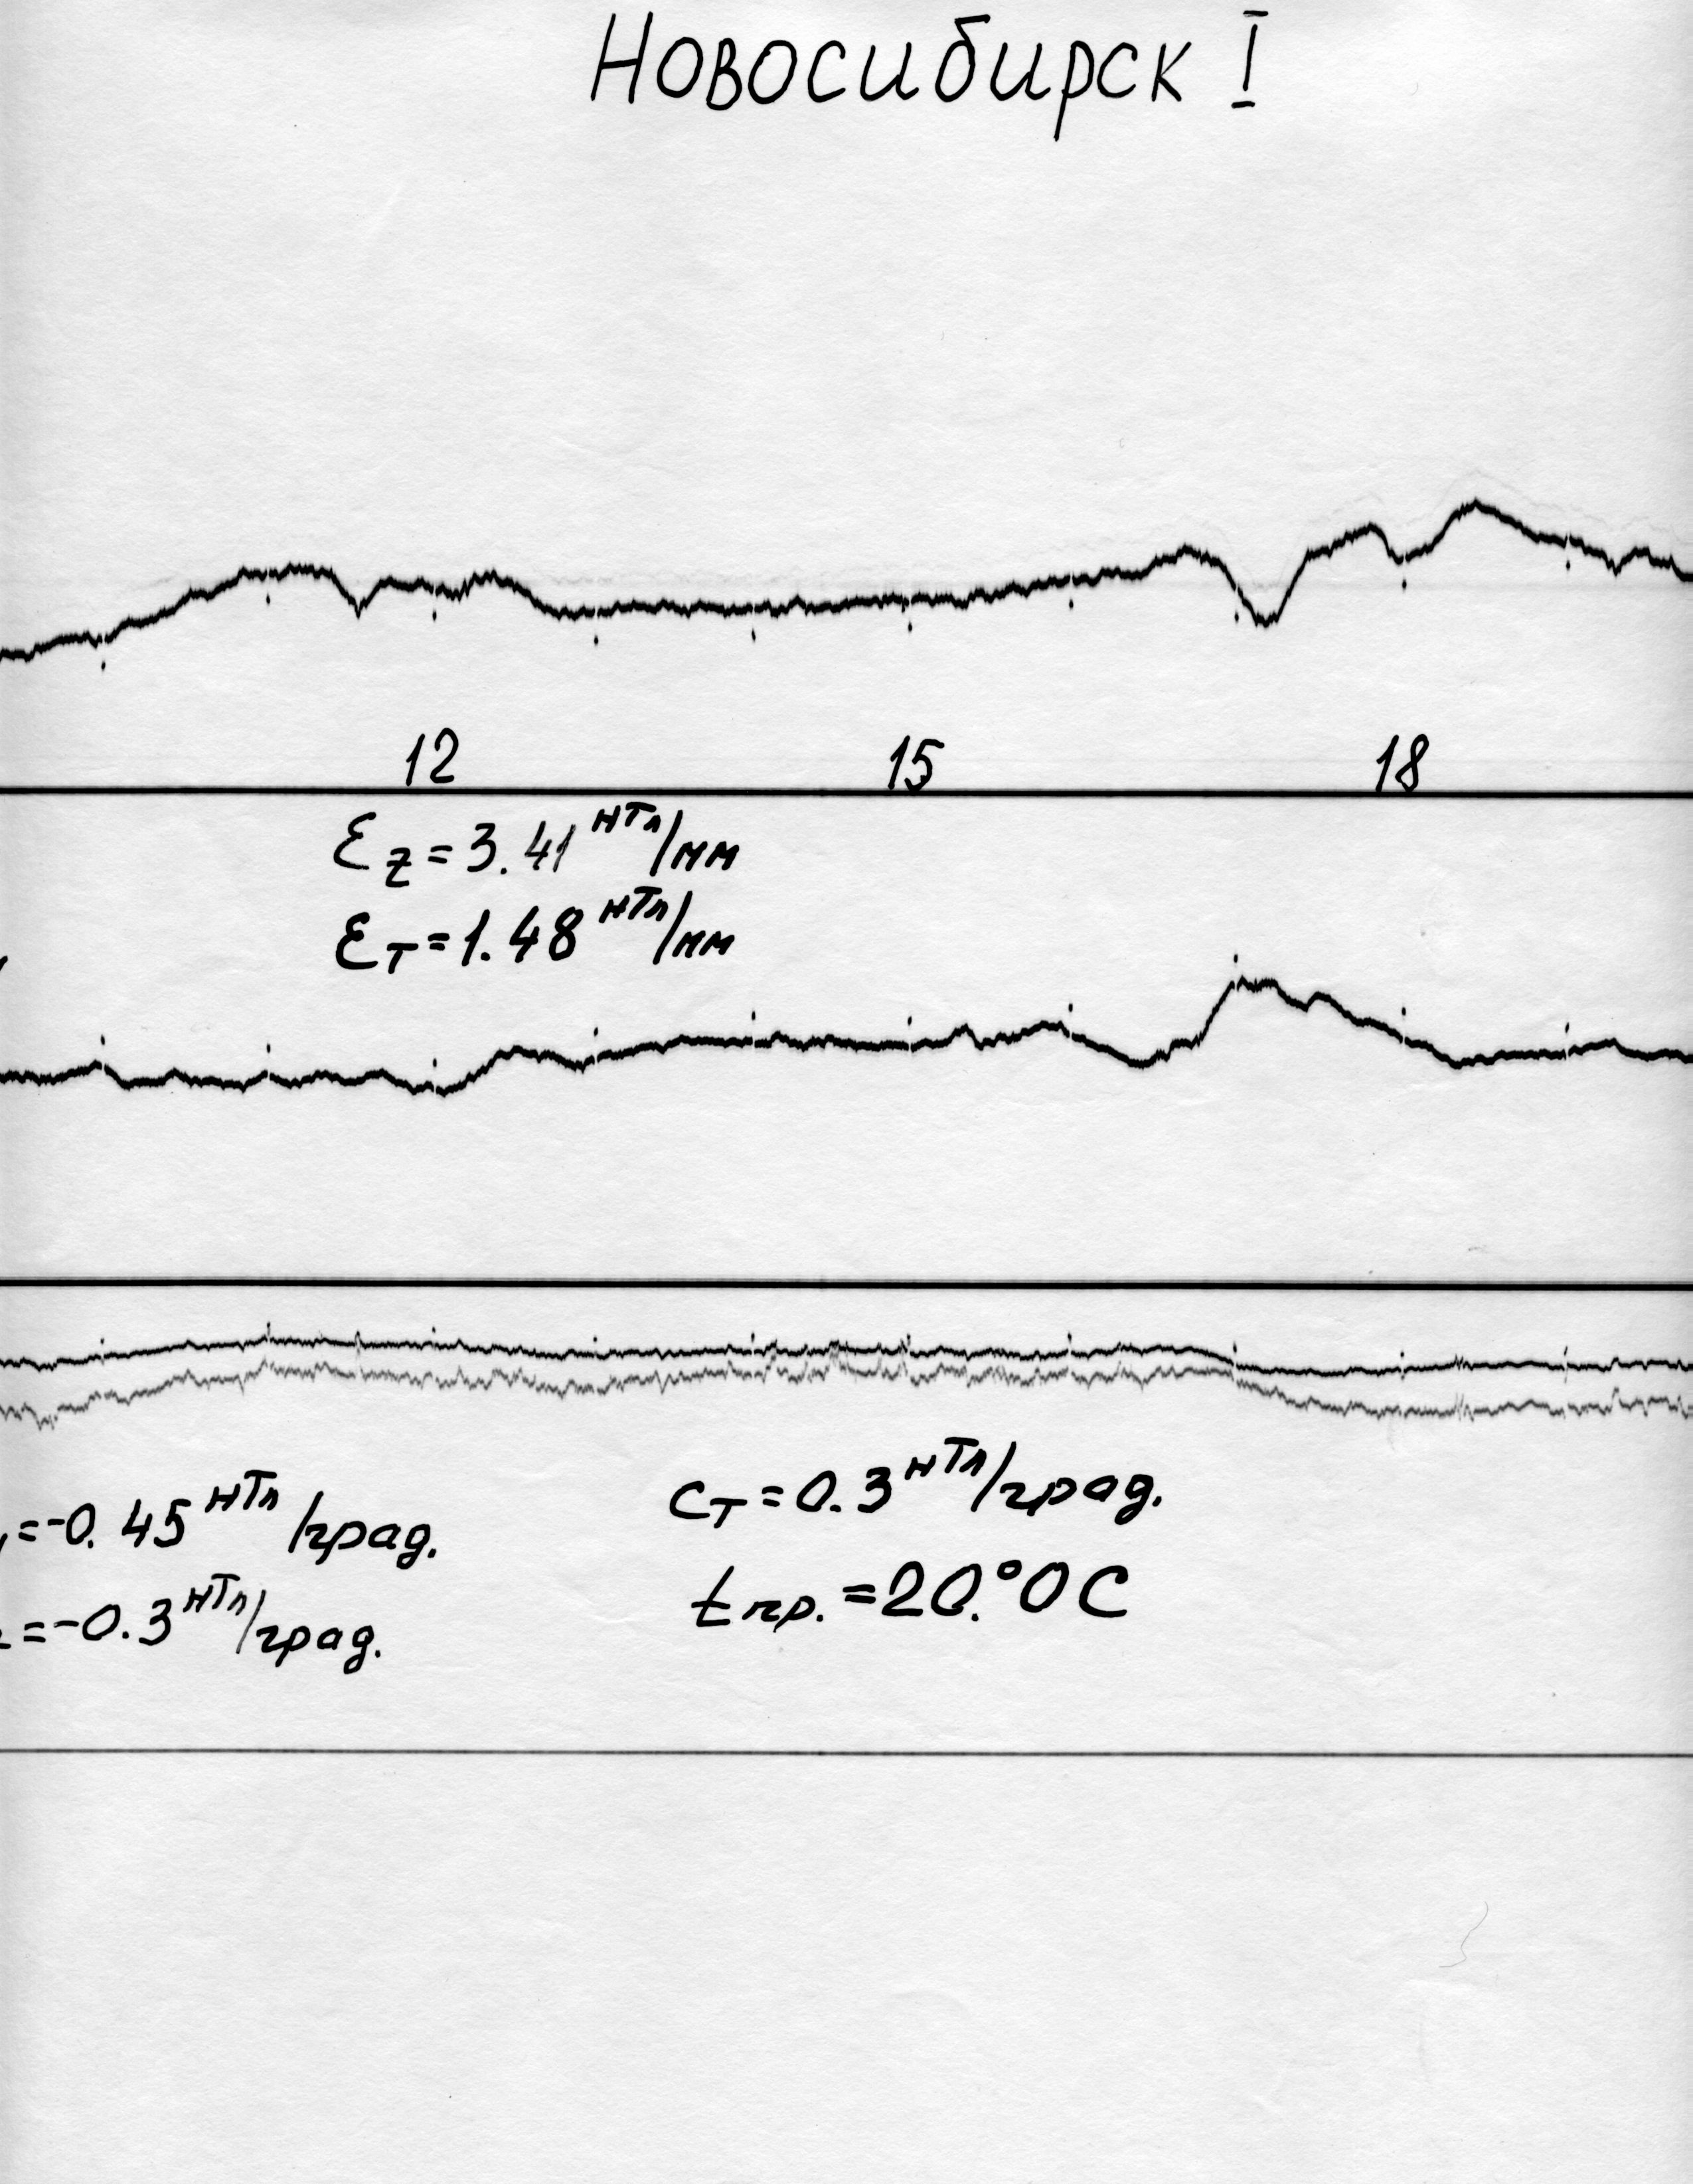 Новосибирск I
12 15 18
Ɛz=3.41 нТл/мм
ƐT=1.48 нТл/мм
=-0.45 нТл/град.
=-0.3 нТл/град.
CT=0.3 нТл/град.
tпр.=20.°0C